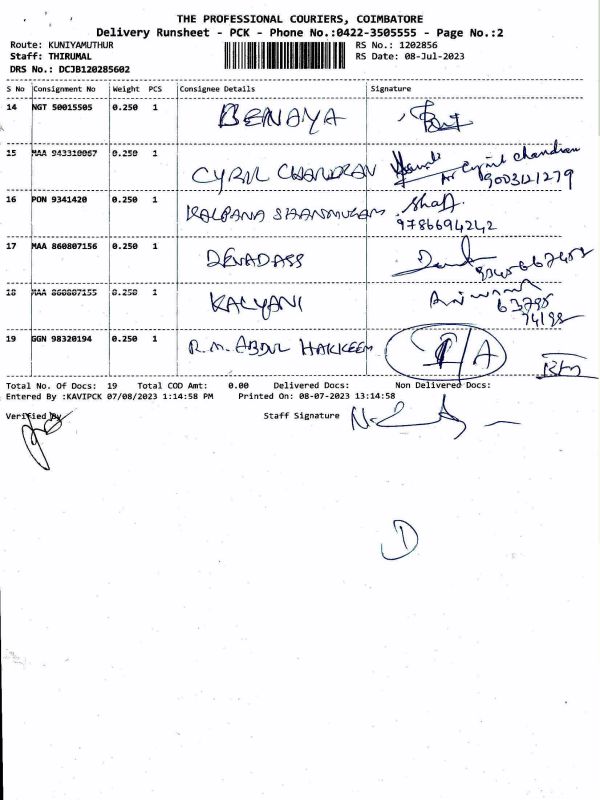 THE PROFESSIONAL COURIERS, COIMBATORE
Delivery Runsheet - PCK - Phone No.:0422-3505555 - Page No.:2
Route: KUNIYAMUTHUR RS No.: 1202856
Staff: THIRUMAL RS Date: 08-Jul-2023
DRS No.: DCJB120285602
S No Consignment No Weight PCS Consignee Details Signature
14 NGT 50015505 0.250 1 BENAYA
15 MAA 943310067 0.250 1 CYRIL CHANDRAN Cyril Chandran
9003121279
16 PON 9341420 0.250 1 KALPANA SHANSMUGAM
9786694242
17 MAA 860807156 0.250 1 DEVADASS
18 MAA 860807155 0.250 1 KALYANI
63795
74198
19 GGN 98320194 0.250 1 R.M. ABDUL HAKKEEM /A
Total No. Of Docs: 19 Total COD Amt: 0.00 Delivered Docs: Non Delivered Docs:
Entered By :KAVIPCK 07/08/2023 1:14:58 PM Printed On: 08-07-2023 13:14:58
Verified By Staff Signature